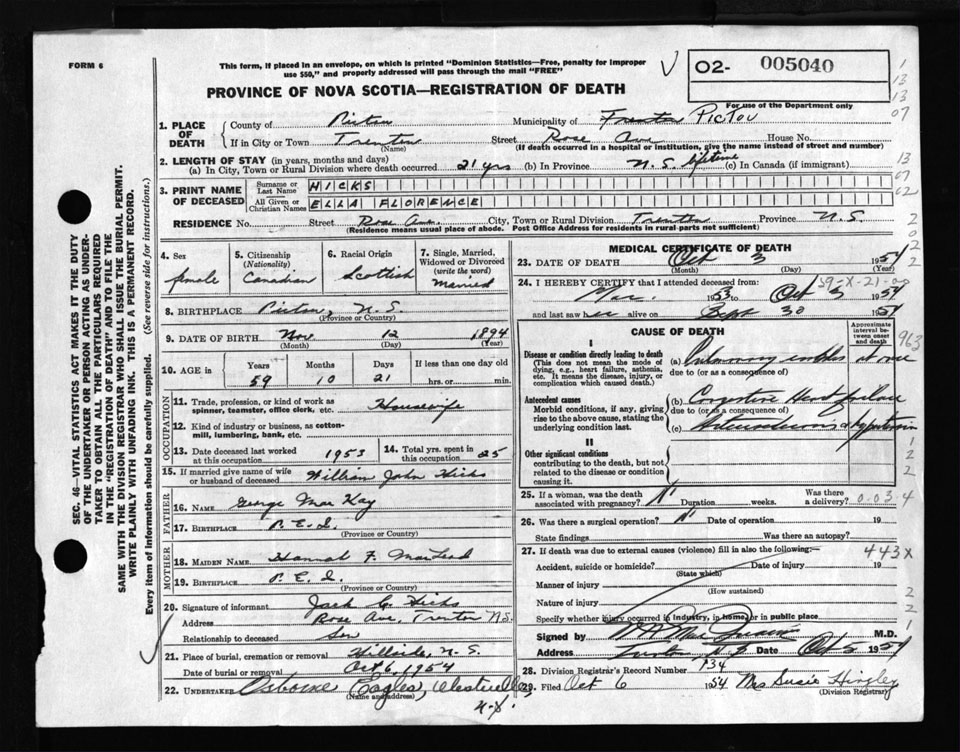 FORM 6
This form, if placed in an envelope, on which is printed "Dominion Statistics—Free, penalty for improper
use $50," and properly addressed will pass through the mail "FREE"
02- 005040
For use of the Department only
PROVINCE OF NOVA SCOTIA—REGISTRATION OF DEATH
1. PLACE OF DEATH
County of Pictou Municipality of Pictou
If in City or Town Trenton Street Rose Ave House No.
(Name) (If death occurred in a hospital or institution, give the name instead of street and number)
2. LENGTH OF STAY (in years, months and days)
(a) In City, Town or Rural Division where death occurred 21 yrs (b) In Province N.S. lifetime (c) In Canada (if immigrant)
3. PRINT NAME OF DECEASED
Surname or Last Name HICKS
All Given or Christian Names ELLA FLORENCE
RESIDENCE No. Street Rose Ave. City, Town or Rural Division Trenton Province N.S.
(Residence means usual place of abode. Post Office Address for residents in rural parts not sufficient)
4. Sex female
5. Citizenship (Nationality) Canadian
6. Racial Origin Scottish
7. Single, Married, Widowed or Divorced (write the word) married
8. BIRTHPLACE Pictou, N.S.
(Province or Country)
9. DATE OF BIRTH Nov. 12 1894
(Month) (Day) (Year)
10. AGE in Years Months Days If less than one day old
59 10 21 hrs. or min.
OCCUPATION
11. Trade, profession, or kind of work as spinner, teamster, office clerk, etc. Housewife
12. Kind of industry or business, as cotton-mill, lumbering, bank, etc.
13. Date deceased last worked at this occupation 1953
14. Total yrs. spent in this occupation 25
15. If married give name of wife or husband of deceased William John Hicks
FATHER
16. NAME George MacKay
17. BIRTHPLACE P.E.I.
(Province or Country)
MOTHER
18. MAIDEN NAME Hannah F. MacLeod
19. BIRTHPLACE P.E.I.
(Province or Country)
20. Signature of informant Jack C. Hicks
Address Rose Ave, Trenton N.S.
Relationship to deceased Son
21. Place of burial, cremation or removal Hillside, N.S.
Date of burial or removal Oct 6, 1954
22. UNDERTAKER Osborne Eagles, Westville,
(Name and address)
N.S.
MEDICAL CERTIFICATE OF DEATH
23. DATE OF DEATH Oct 3 1954
(Month) (Day) (Year)
24. I HEREBY CERTIFY that I attended deceased from:
1953 to Oct 3 1954
and last saw her alive on Sept 30 1954
CAUSE OF DEATH
Approximate interval between onset and death
I
Disease or condition directly leading to death
(This does not mean the mode of dying, e.g., heart failure, asthenia, etc. It means the disease, injury, or complication which caused death.)
(a) Pulmonary at once
due to (or as a consequence of)
Antecedent causes
Morbid conditions, if any, giving rise to the above cause, stating the underlying condition last.
(b) Congestive Heart failure
due to (or as a consequence of)
(c) Hypertension
II
Other significant conditions
contributing to the death, but not related to the disease or condition causing it.
25. If a woman, was the death associated with pregnancy? Duration weeks. Was there a delivery?
26. Was there a surgical operation? Date of operation 19
State findings Was there an autopsy?
27. If death was due to external causes (violence) fill in also the following:—
Accident, suicide or homicide? Date of injury 19
(State which)
Manner of injury
(How sustained)
Nature of injury
Specify whether injury occurred in industry, in home or in public place
Signed by M.D.
Address Date Oct 5 1954
28. Division Registrar's Record Number 734
29. Filed Oct 6 1954 Mrs Susie Hingley
(Division Registrar)
443X
963
SEC. 46—VITAL STATISTICS ACT MAKES IT THE DUTY
OF THE UNDERTAKER OR PERSON ACTING AS UNDER-
TAKER TO OBTAIN ALL THE PARTICULARS REQUIRED
IN THE "REGISTRATION OF DEATH" AND TO FILE THE
SAME WITH THE DIVISION REGISTRAR WHO SHALL ISSUE THE BURIAL PERMIT.
WRITE PLAINLY WITH UNFADING INK. THIS IS A PERMANENT RECORD.
Every item of information should be carefully supplied. (See reverse side for instructions.)